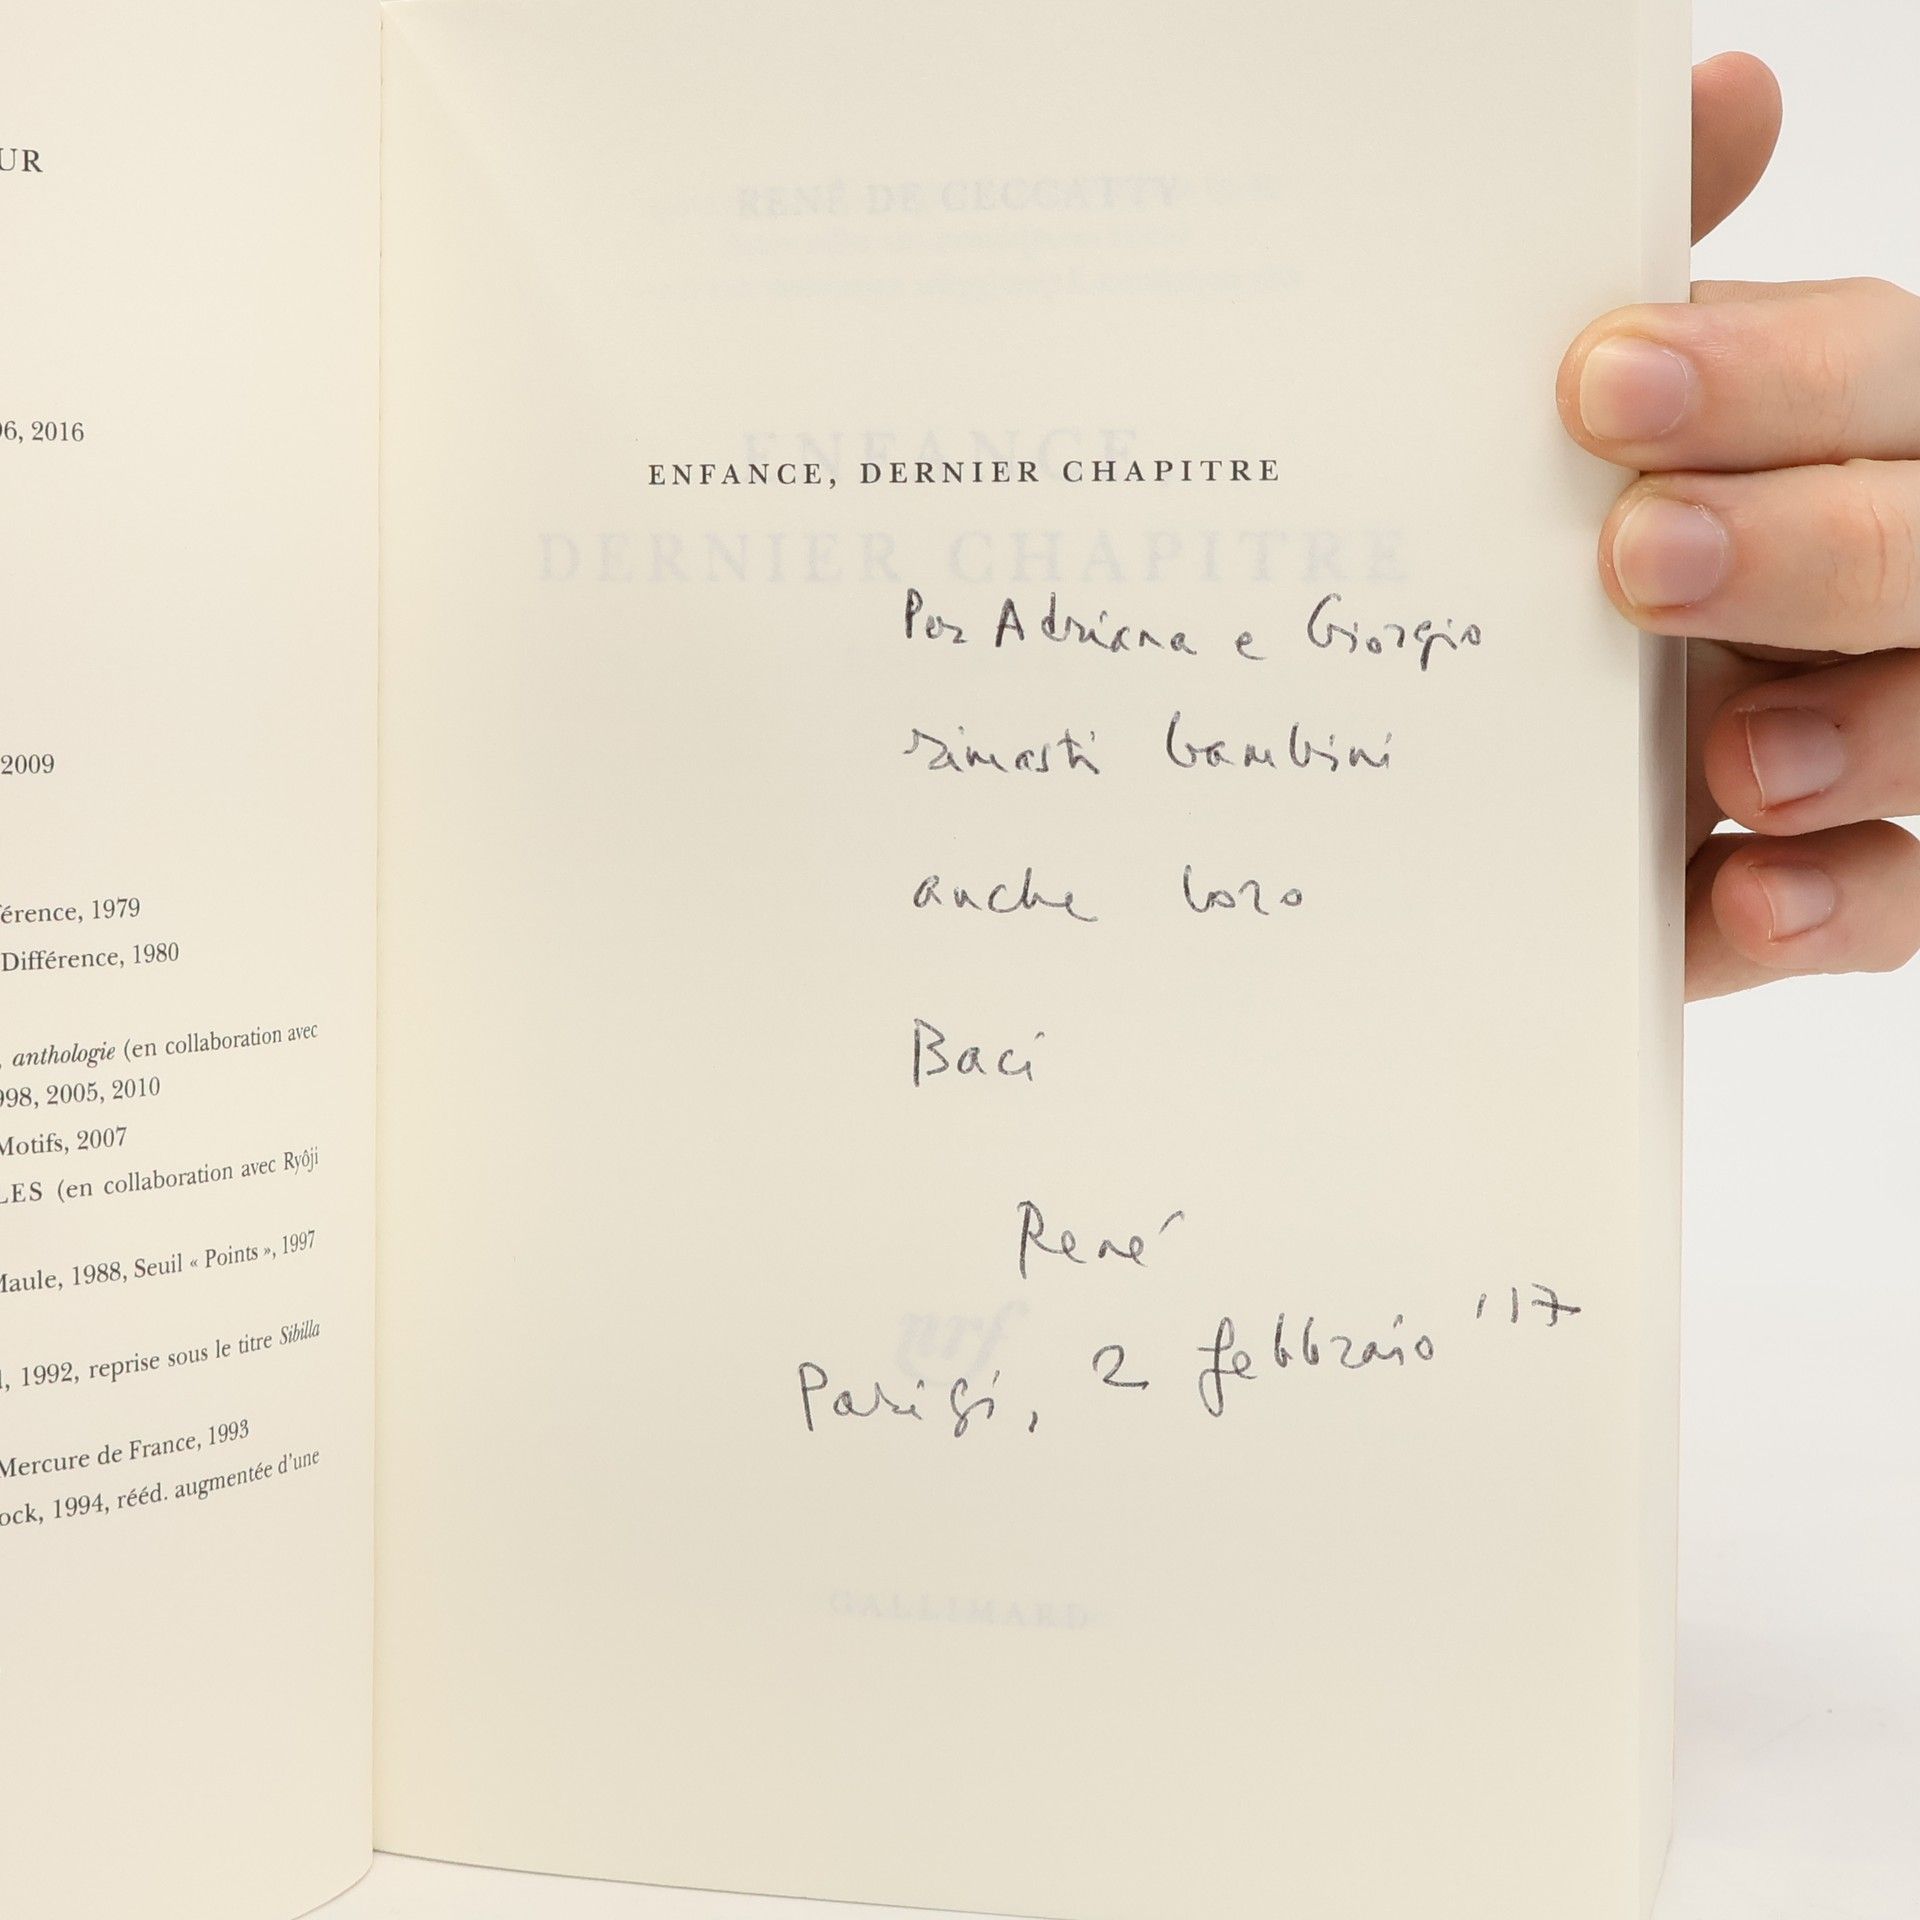 UR
06, 2016
2009
férence, 1979
Différence, 1980
, anthologie (en collaboration avec
998, 2005, 2010
Motifs, 2007
LES (en collaboration avec Ryôji
Maule, 1988, Seuil « Points », 1997
, 1992, reprise sous le titre Sibilla
Mercure de France, 1993
ock, 1994, rééd. augmentée d'une
RENÉ DE CECCATTY
ENFANCE,
ENFANCE, DERNIER CHAPITRE
DERNIER CHAPITRE
Per Adriana e Giorgio
rimasti bambini
anche loro
Baci
René
nrf
Parigi, 2 febbraio '17
GALLIMARD